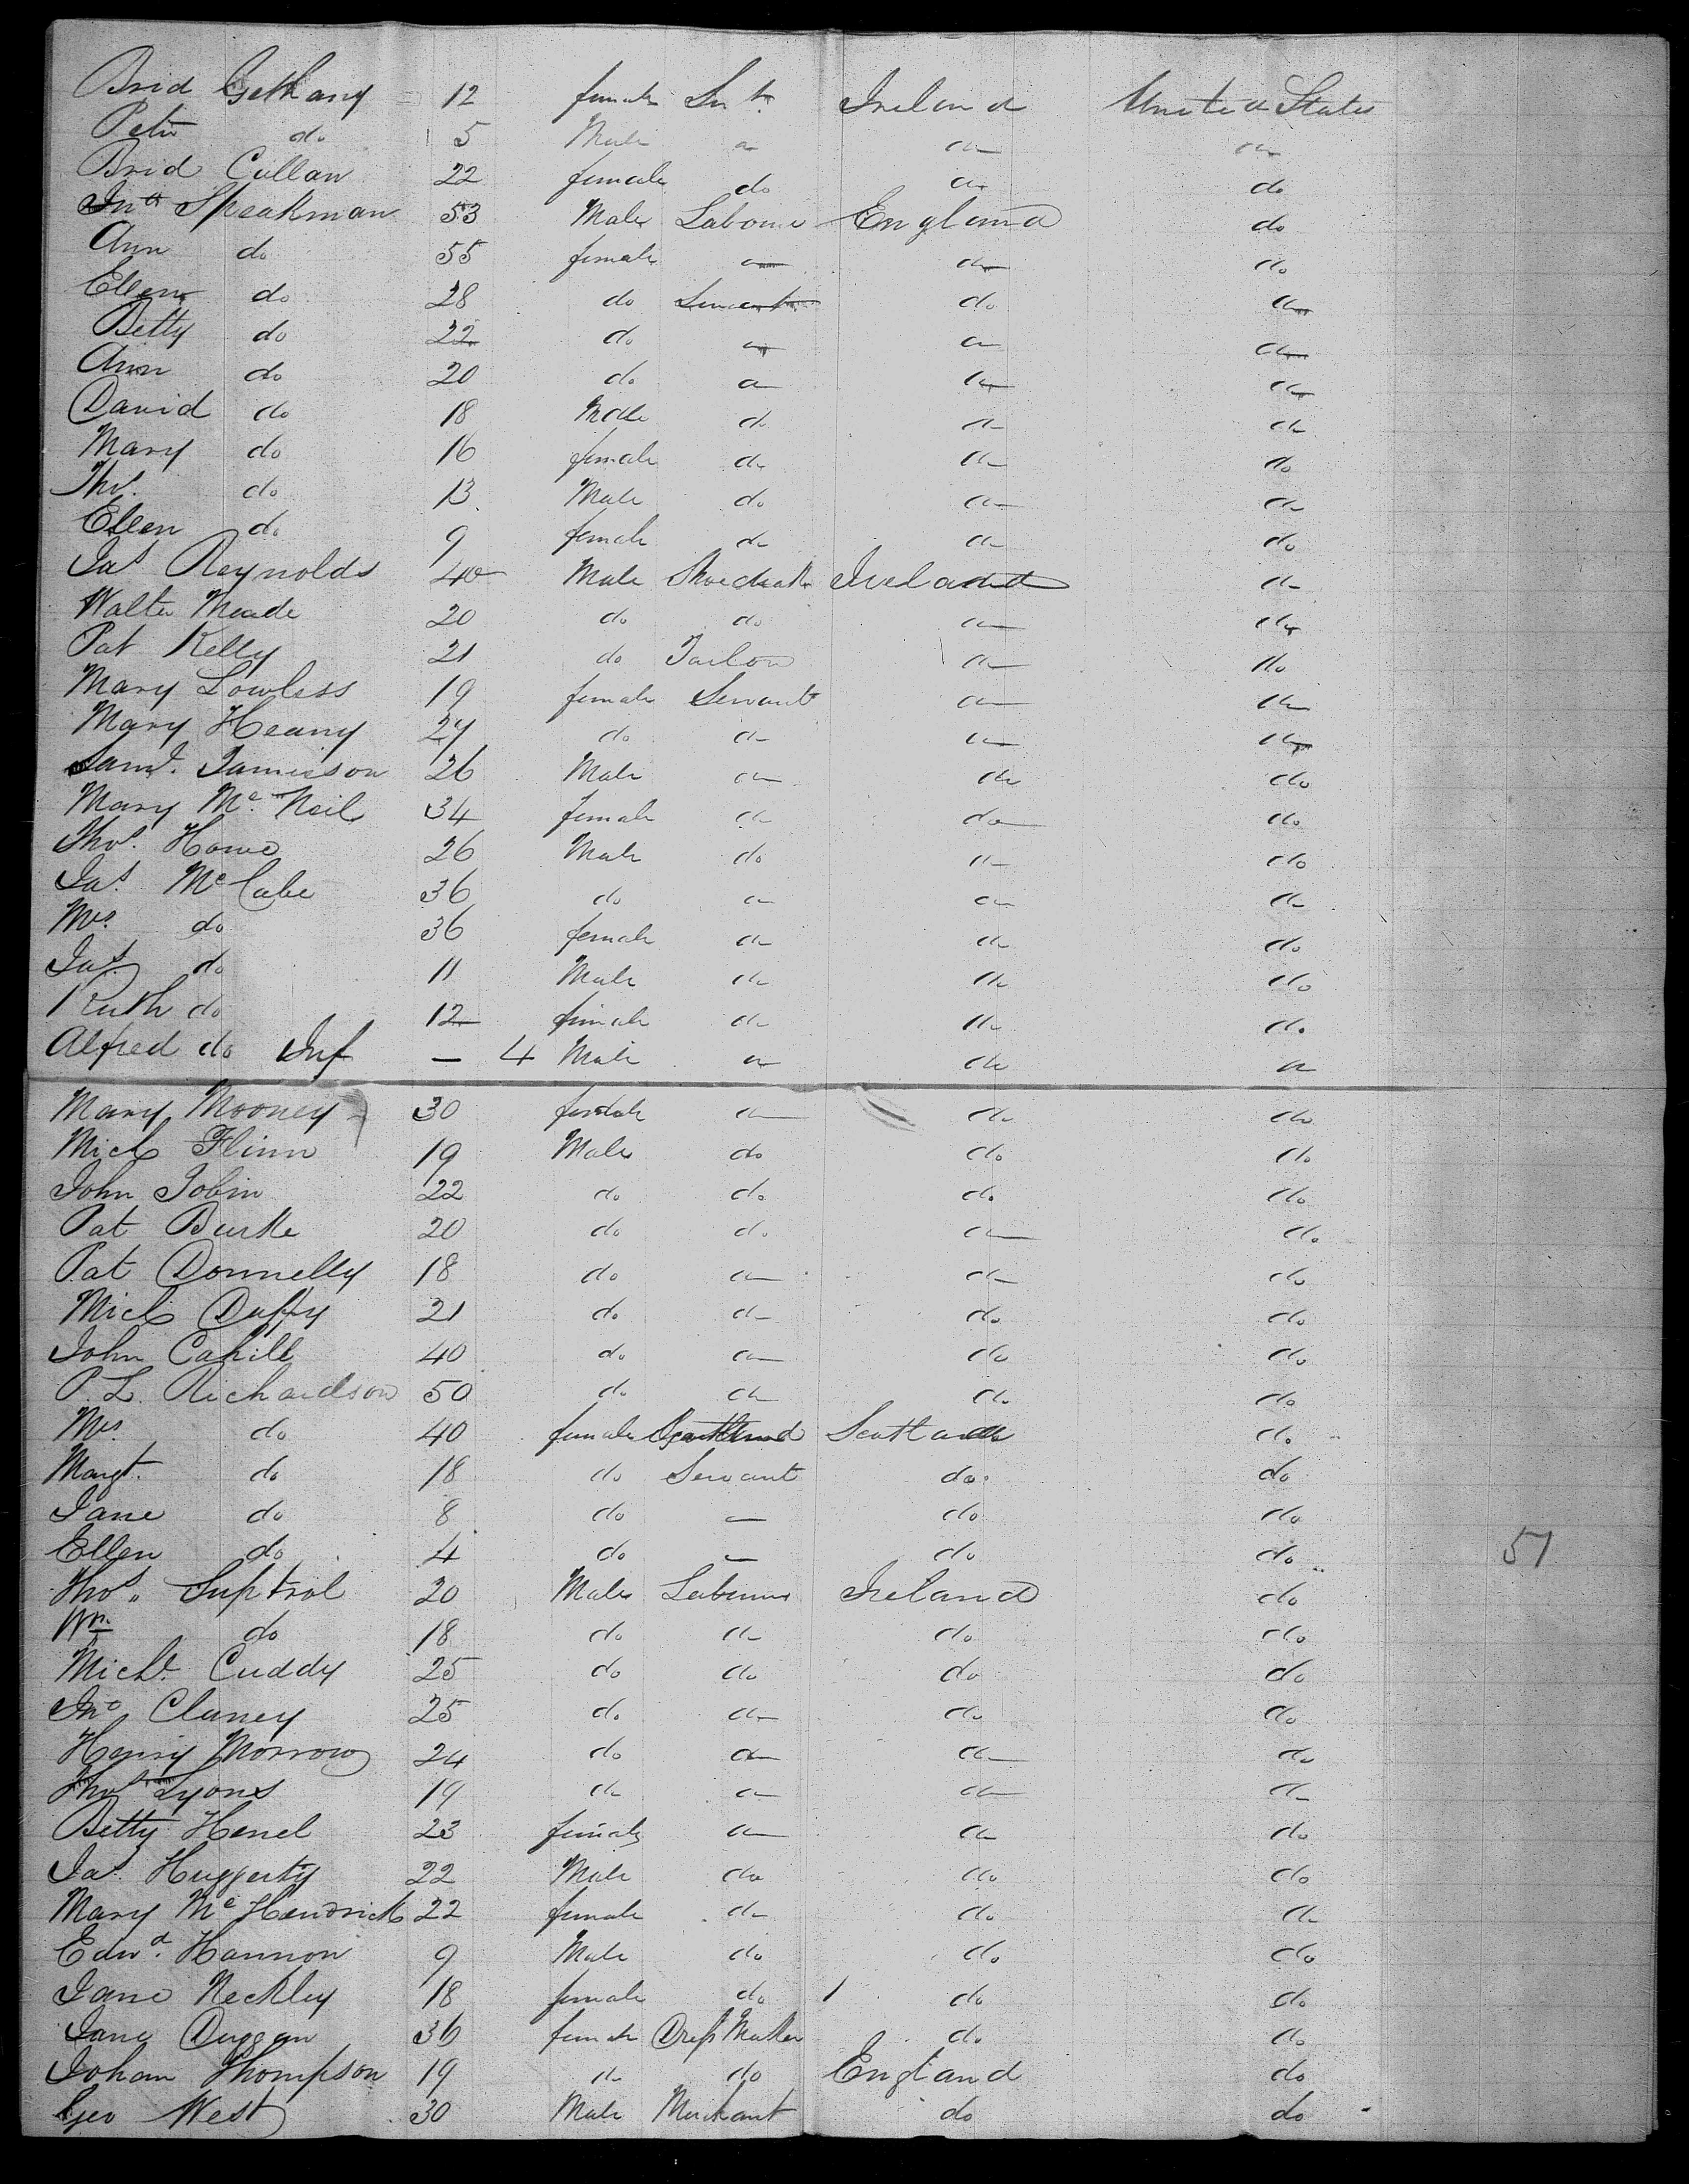 Brid Gethany 12 female Svt. Ireland United States
Peter do 5 Male do do do
Brid Cullan 22 female do do do
Jno Speakman 53 Male Labourer England do
Ann do 55 female do do do
Ellen do 28 do Servant do do
Betty do 22 do do do do
Ann do 20 do do do do
David do 18 Male do do do
Mary do 16 female do do do
Thos. do 13 Male do do do
Ellen do 9 female do do do
Jas Reynolds 40 Male Ireland do
Walter Meade 20 do do do do
Pat Kelly 21 do Tailor do do
Mary Lowless 19 female Servant do do
Mary Heany 24 do do do do
Saml. Jamieson 26 Male do do do
Mary Mc Neil 34 female do do do
Thos. Howe 26 Male do do do
Jas. McCabe 36 do do do do
Mrs. do 36 female do do do
Jas. do 11 Male do do do
Ruth do 12 female do do do
Alfred do Inf — 4 Male do do do
Mary Mooney 30 female do do do
Mich Flinn 19 Male do do do
John Tobin 22 do do do do
Pat Burke 20 do do do do
Pat Donnelly 18 do do do do
Mich Duffy 21 do do do do
John Cahill 40 do do do do
P. L. Richardson 50 do do do do
Mrs. do 40 female Scotland do
Margt. do 18 do Servant do do
Jane do 8 do — do do
Ellen do 4 do — do do
51
Thos. Suptrol 20 Male Labourer Ireland do
Wm do 18 do do do do
Michl. Cuddy 25 do do do do
Jno Clancy 25 do do do do
Henry Morrow 24 do do do do
Thos Lyons 19 do do do do
Betty Henel 23 female do do do
Jas. Huggerty 22 Male do do do
Mary Mc Hendrick 22 female do do do
Edwd. Hannon 9 Male do do do
Jane Neckley 18 female do do do
Jane Duggan 36 female Dress Maker do do
Johan Thompson 19 do do England do
Geo West 30 Male Merchant do do